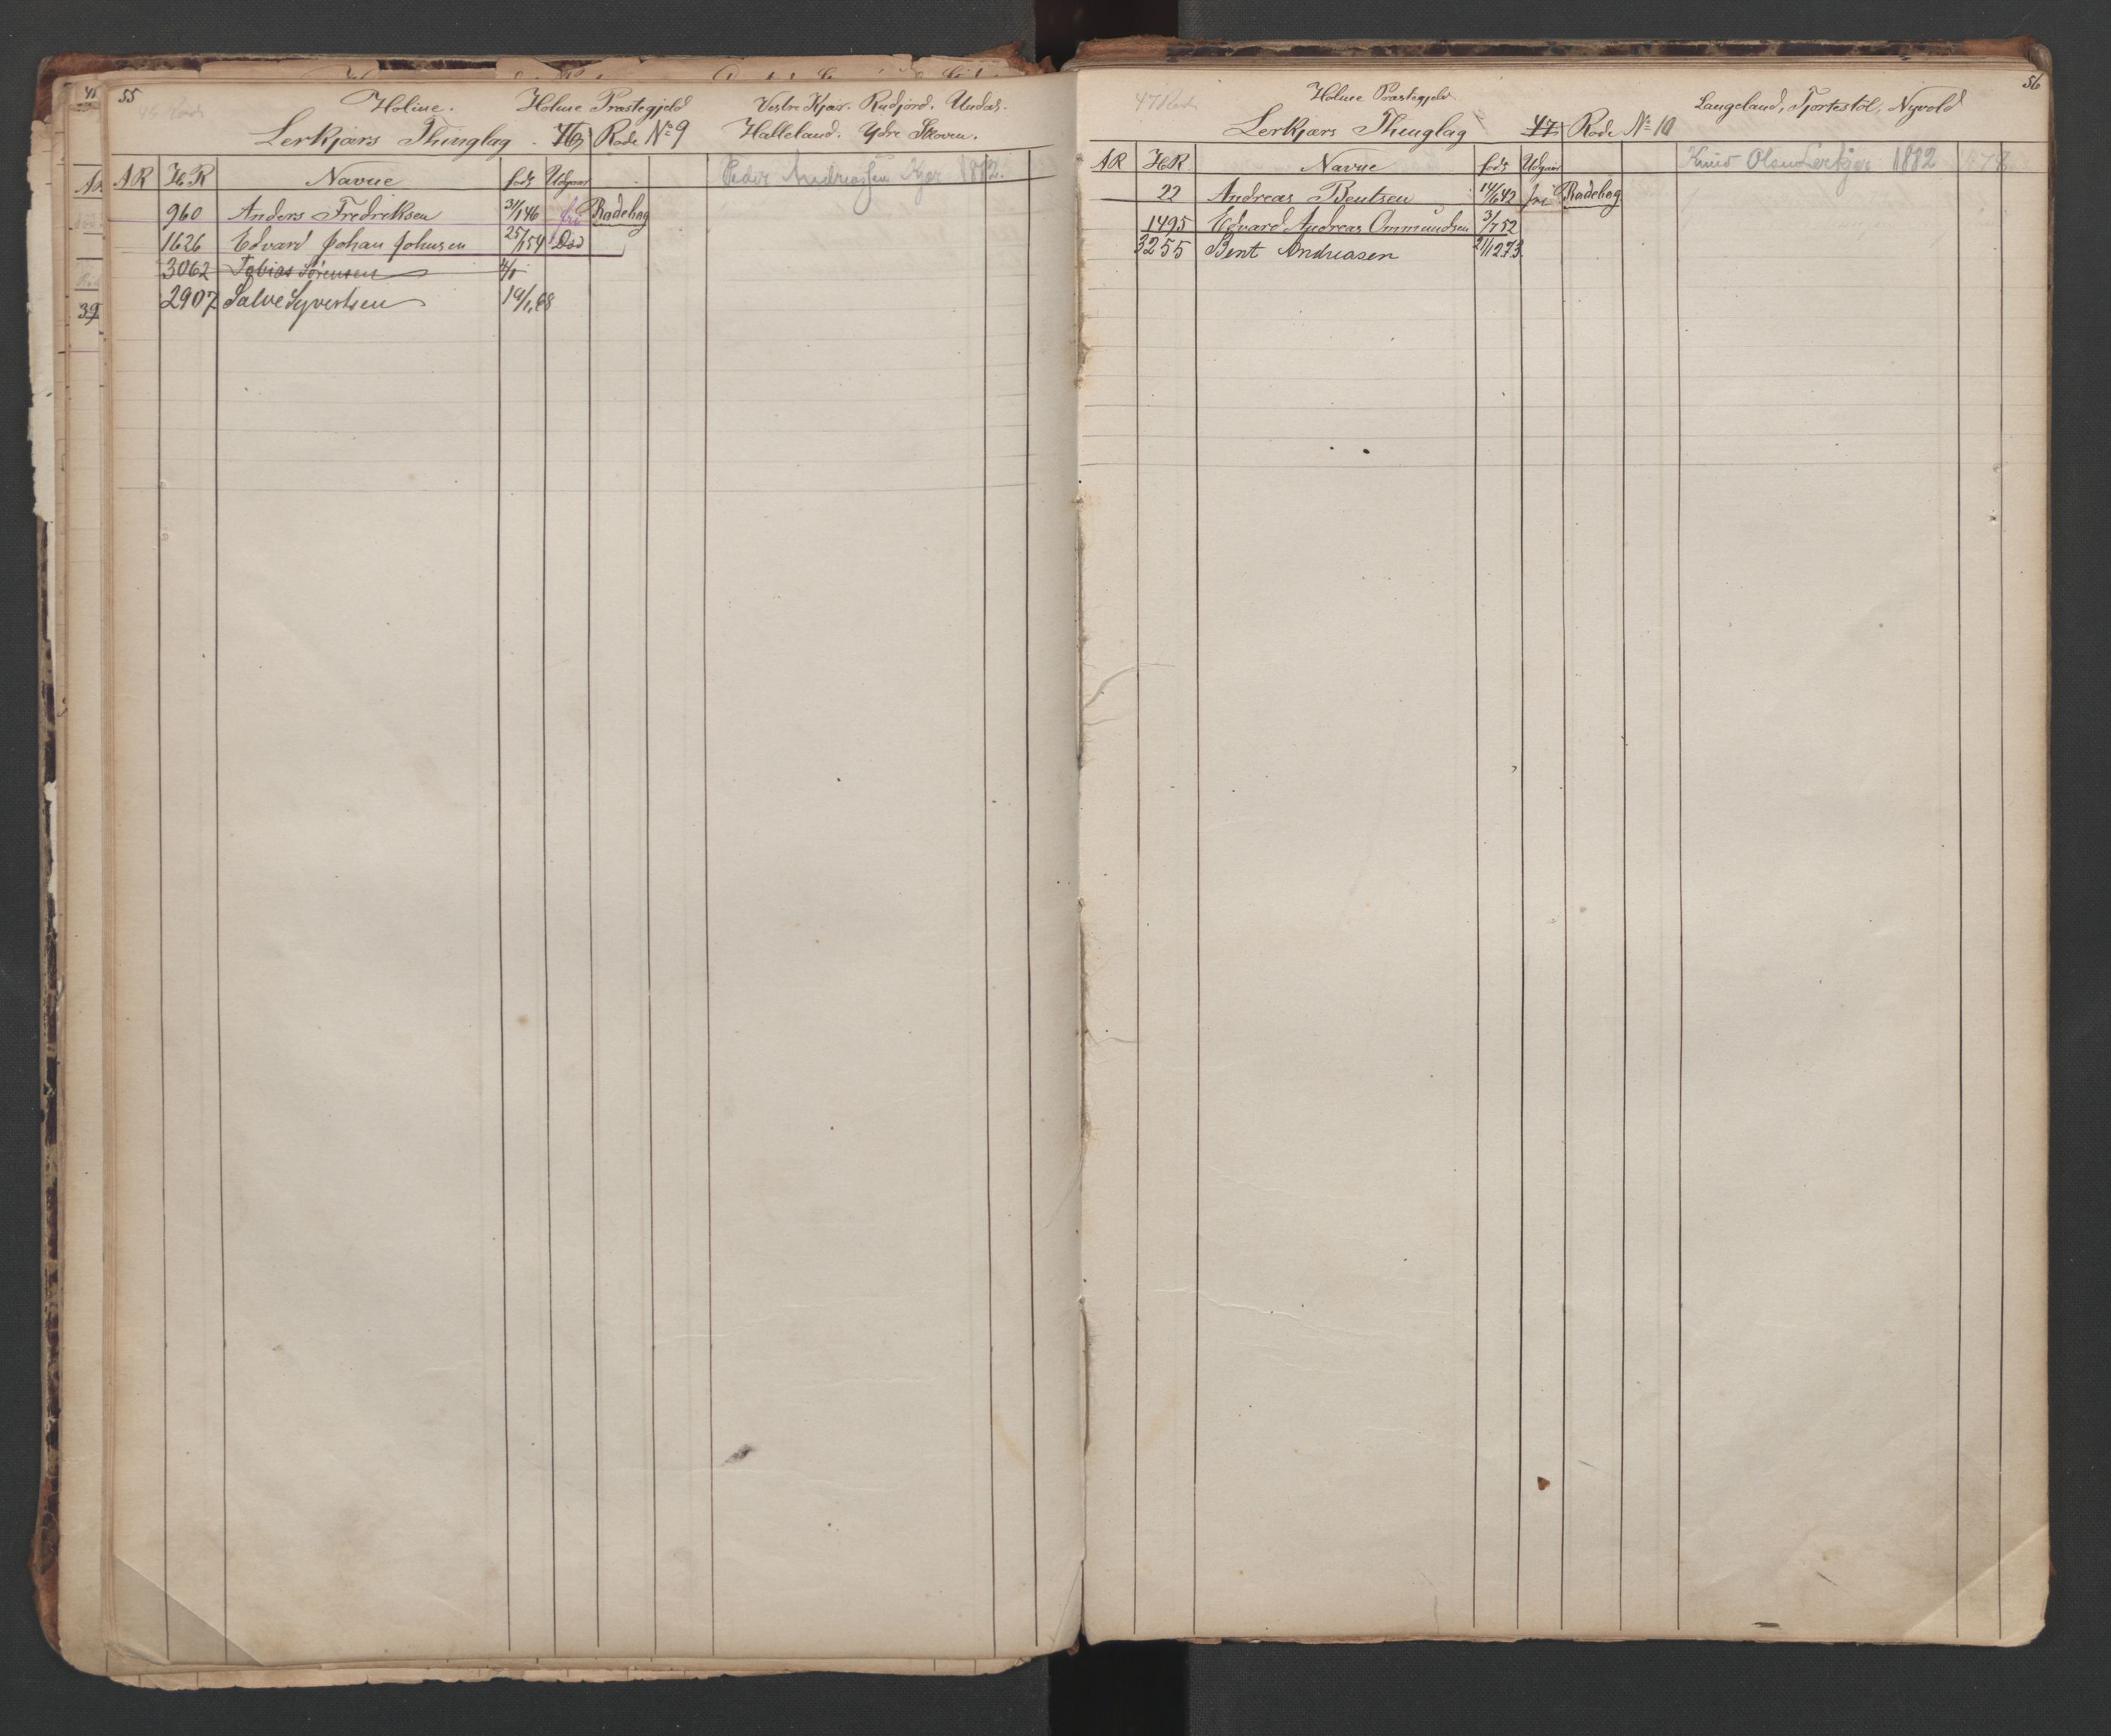 55
46 Rode
Holme. Holme Præstegjeld Vestre Kjær. Rudjord. Undas.
Lerkjærs Thinglag 46 Rode No 9 Halleland. Ydre Skoven.
AR HR Navne født Udgaar Peder Andreassen Kjær 1882.
960 Anders Fredreksen 3/1 46 fri Rodehag
1626 Edvard Johan Johnsen 25/1 54 Død
3062 Tobias Sørensen
2907 Salve Syvertsen
39
56
47 Rode Holme Præstegjeld Langeland, Tjortestøl, Nyvold
Lerkjærs Thinglag 47 Rode No 10
AR HR Navne født Udgaar Knud Olsen Lerkjær 1882
22 Andreas Bentsen 14/6 42 fri Rodehag
1495 Edvard Andreas Ommundsen 3/7 52
3255 Bent Andreasen 21/12 73